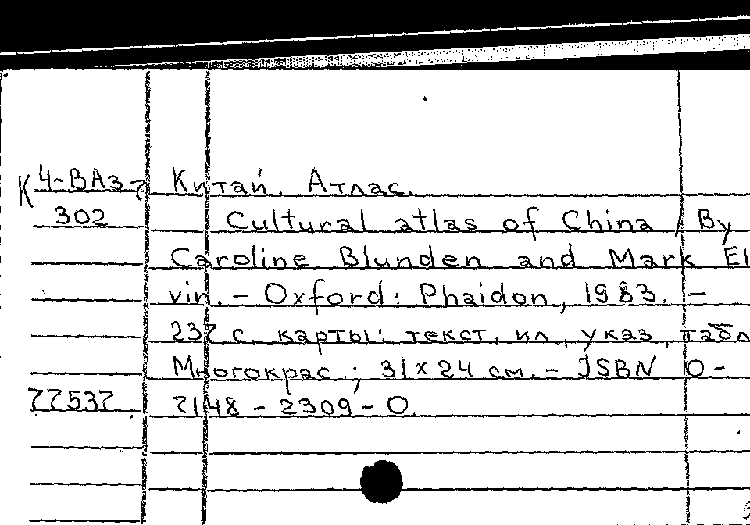 К 4-ВАЗ-7 Китай. Атлас.
302 Cultural atlas of China / By
Caroline Blunden and Mark El
vin. – Oxford: Phaidon, 1983. –
237 с. карты: текст, ил, указ, табл
Многокрас; 31х24 см. – ISBN 0-
77537 7148-2309-0.